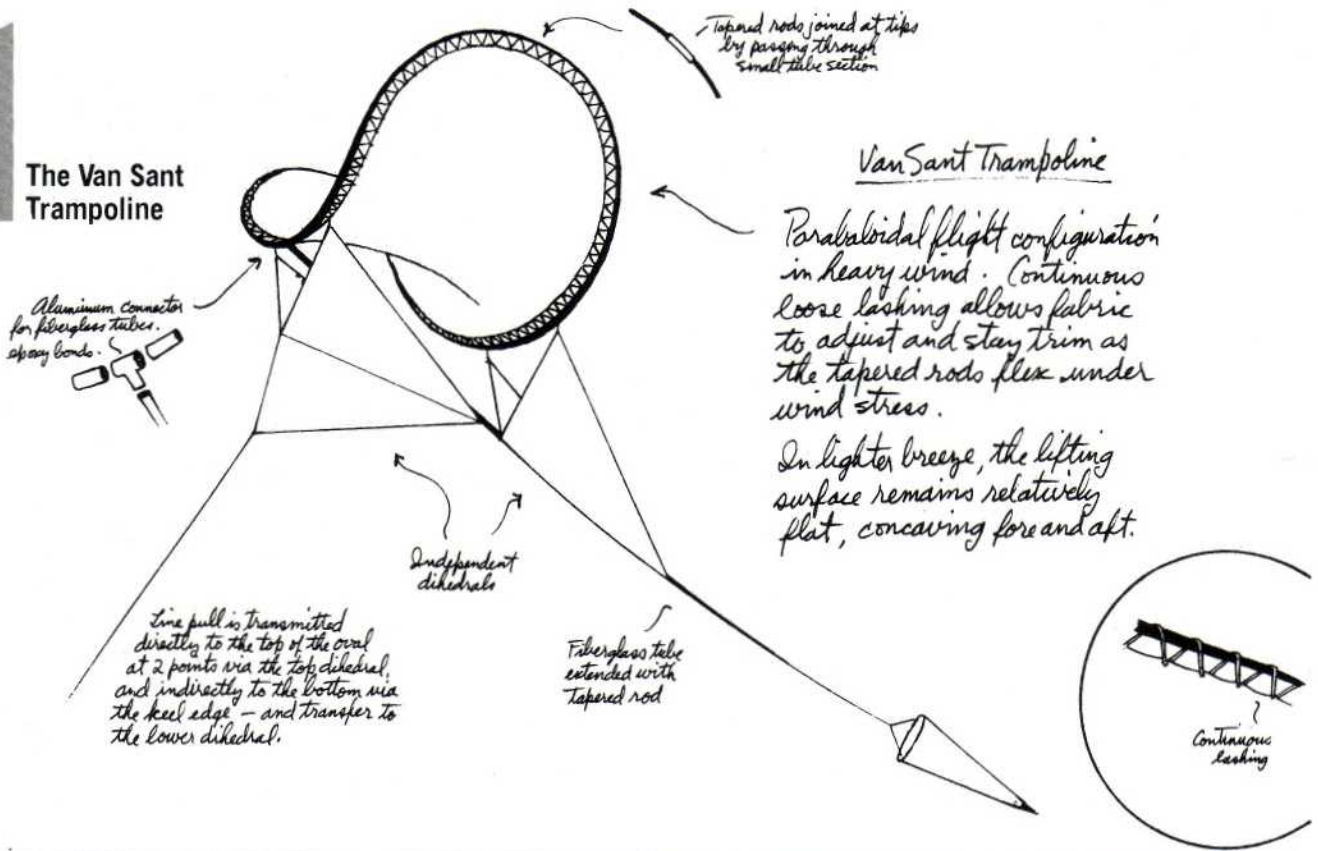 The Van Sant
Trampoline
Tapered rods joined at tips
by passing through
small tube section
Van Sant Trampoline
Parabaloidal flight configuration
in heavy wind. Continuous
loose lashing allows fabric
to adjust and stay trim as
the tapered rods flex under
wind stress.
In lighter breeze, the lifting
surface remains relatively
flat, concaving fore and aft.
Aluminum connector
for fiberglass tubes.
epoxy bonds.
Independent
dihedrals
Line pull is transmitted
directly to the top of the oval
at 2 points via the top dihedral,
and indirectly to the bottom via
the keel edge — and transfer to
the lower dihedral.
Fiberglass tube
extended with
Tapered rod
Continuous
lashing